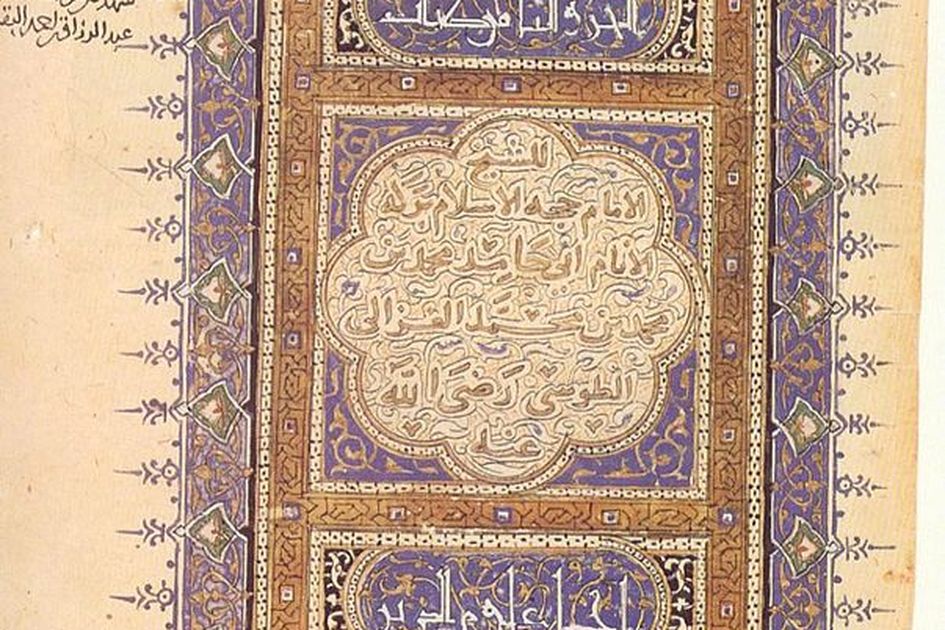 عبد الرزاق
الجزء
للشيخ
الامام حجه الاسلام بركه
الانام ابي حامد محمد بن
محمد بن محمد الغزالي
الطوسي رضي الله
عنه
احياء علوم الدين